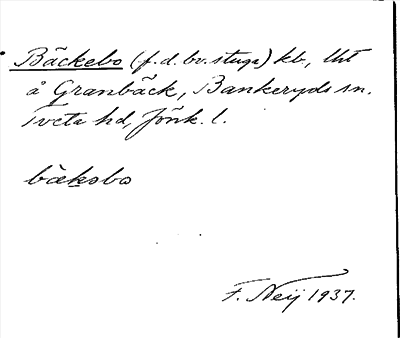 Bäckebo (f. d. bv. stuga) kb, lht
å Granbäck, Bankeryds sn.
Tveta hd, Jönk. l.
bäkəbo
F. Neij 1937.